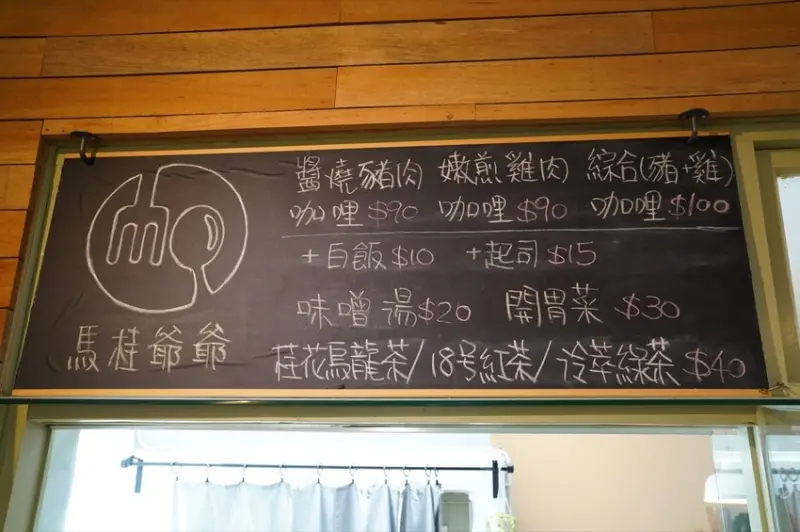 醬燒豬肉 嫩煎雞肉 綜合(豬+雞)
咖哩$90 咖哩$90 咖哩$100
+白飯$10 +起司$15
味噌湯$20 開胃菜 $30
桂花烏龍茶/18号紅茶/冷萃綠茶 $40
馬桂爺爺